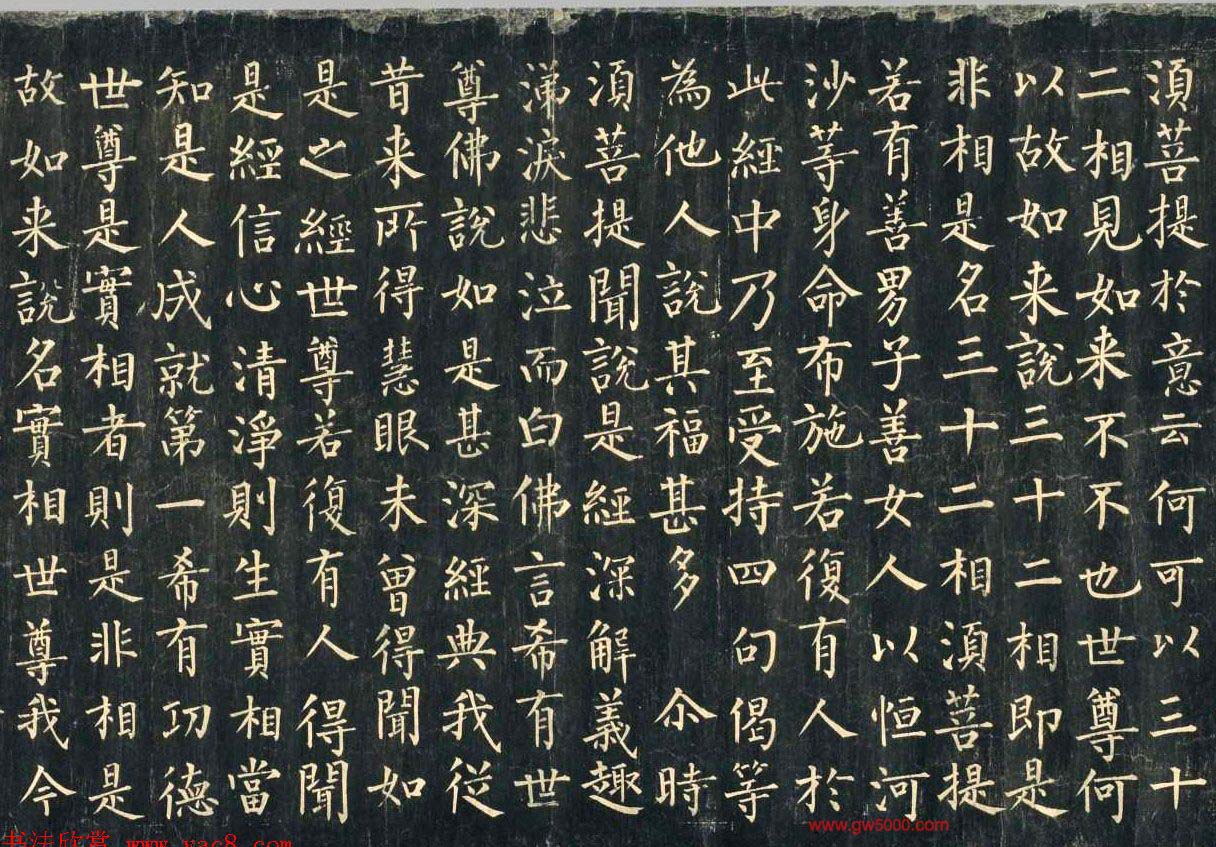 須菩提於意云何可以三十
二相見如来不不也世尊何
以故如来說三十二相即是
非相是名三十二相須菩提
若有善男子善女人以恒河
沙等身命布施若復有人於
此經中乃至受持四句偈等
為他人說其福甚多尒時
須菩提聞說是經深解義趣
涕淚悲泣而白佛言希有世
尊佛說如是甚深經典我從
昔来所得慧眼未曾得聞如
是之經世尊若復有人得聞
是經信心清淨則生實相當
知是人成就第一希有功德
世尊是實相者則是非相是
故如来說名實相世尊我今
www.gw5000.com
书法欣赏 www.yac8.com